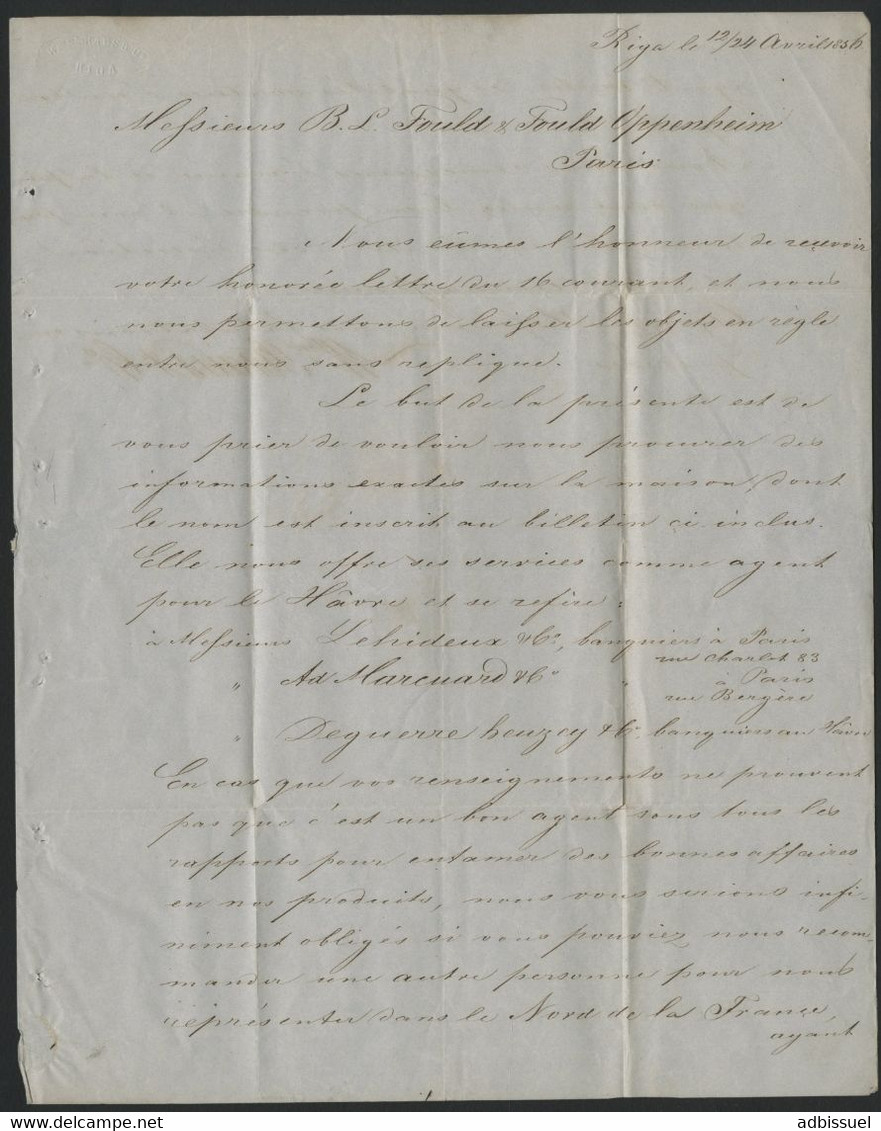 RIGA
Riga le 12/24 Avril 1856
Messieurs B. L. Fould & Fould Oppenheim
Paris
Nous eûmes l'honneur de reçevoir
votre honorée lettre du 16 courant, et nous
nous permettons de laisser les objets en règle
entre nous sans replique.
Le but de la présente est de
vous prier de vouloir nous procurer des
informations exactes sur la maison dont
le nom est inscrit au billetin ci inclus.
Elle nous offre ses services comme agent
pour le Hâvre et se refère:
à Messieurs Lehideux & Co, banquiers à Paris
rue Charlot 83
" Ad Marcuard & Co " à Paris
rue Bergère
" Deguerre heuzey & Co, banquiers au Hâvre
En cas que vos renseignements ne prouvent
pas que c'est un bon agent sous tous les
rapports pour entamer des bonnes affaires
en nos produits, nous vous serions infi-
niment obligés si vous pouviez nous recom-
mander une autre personne pour nous
réprésenter dans le Nord de la France,
ayant
adbissuel